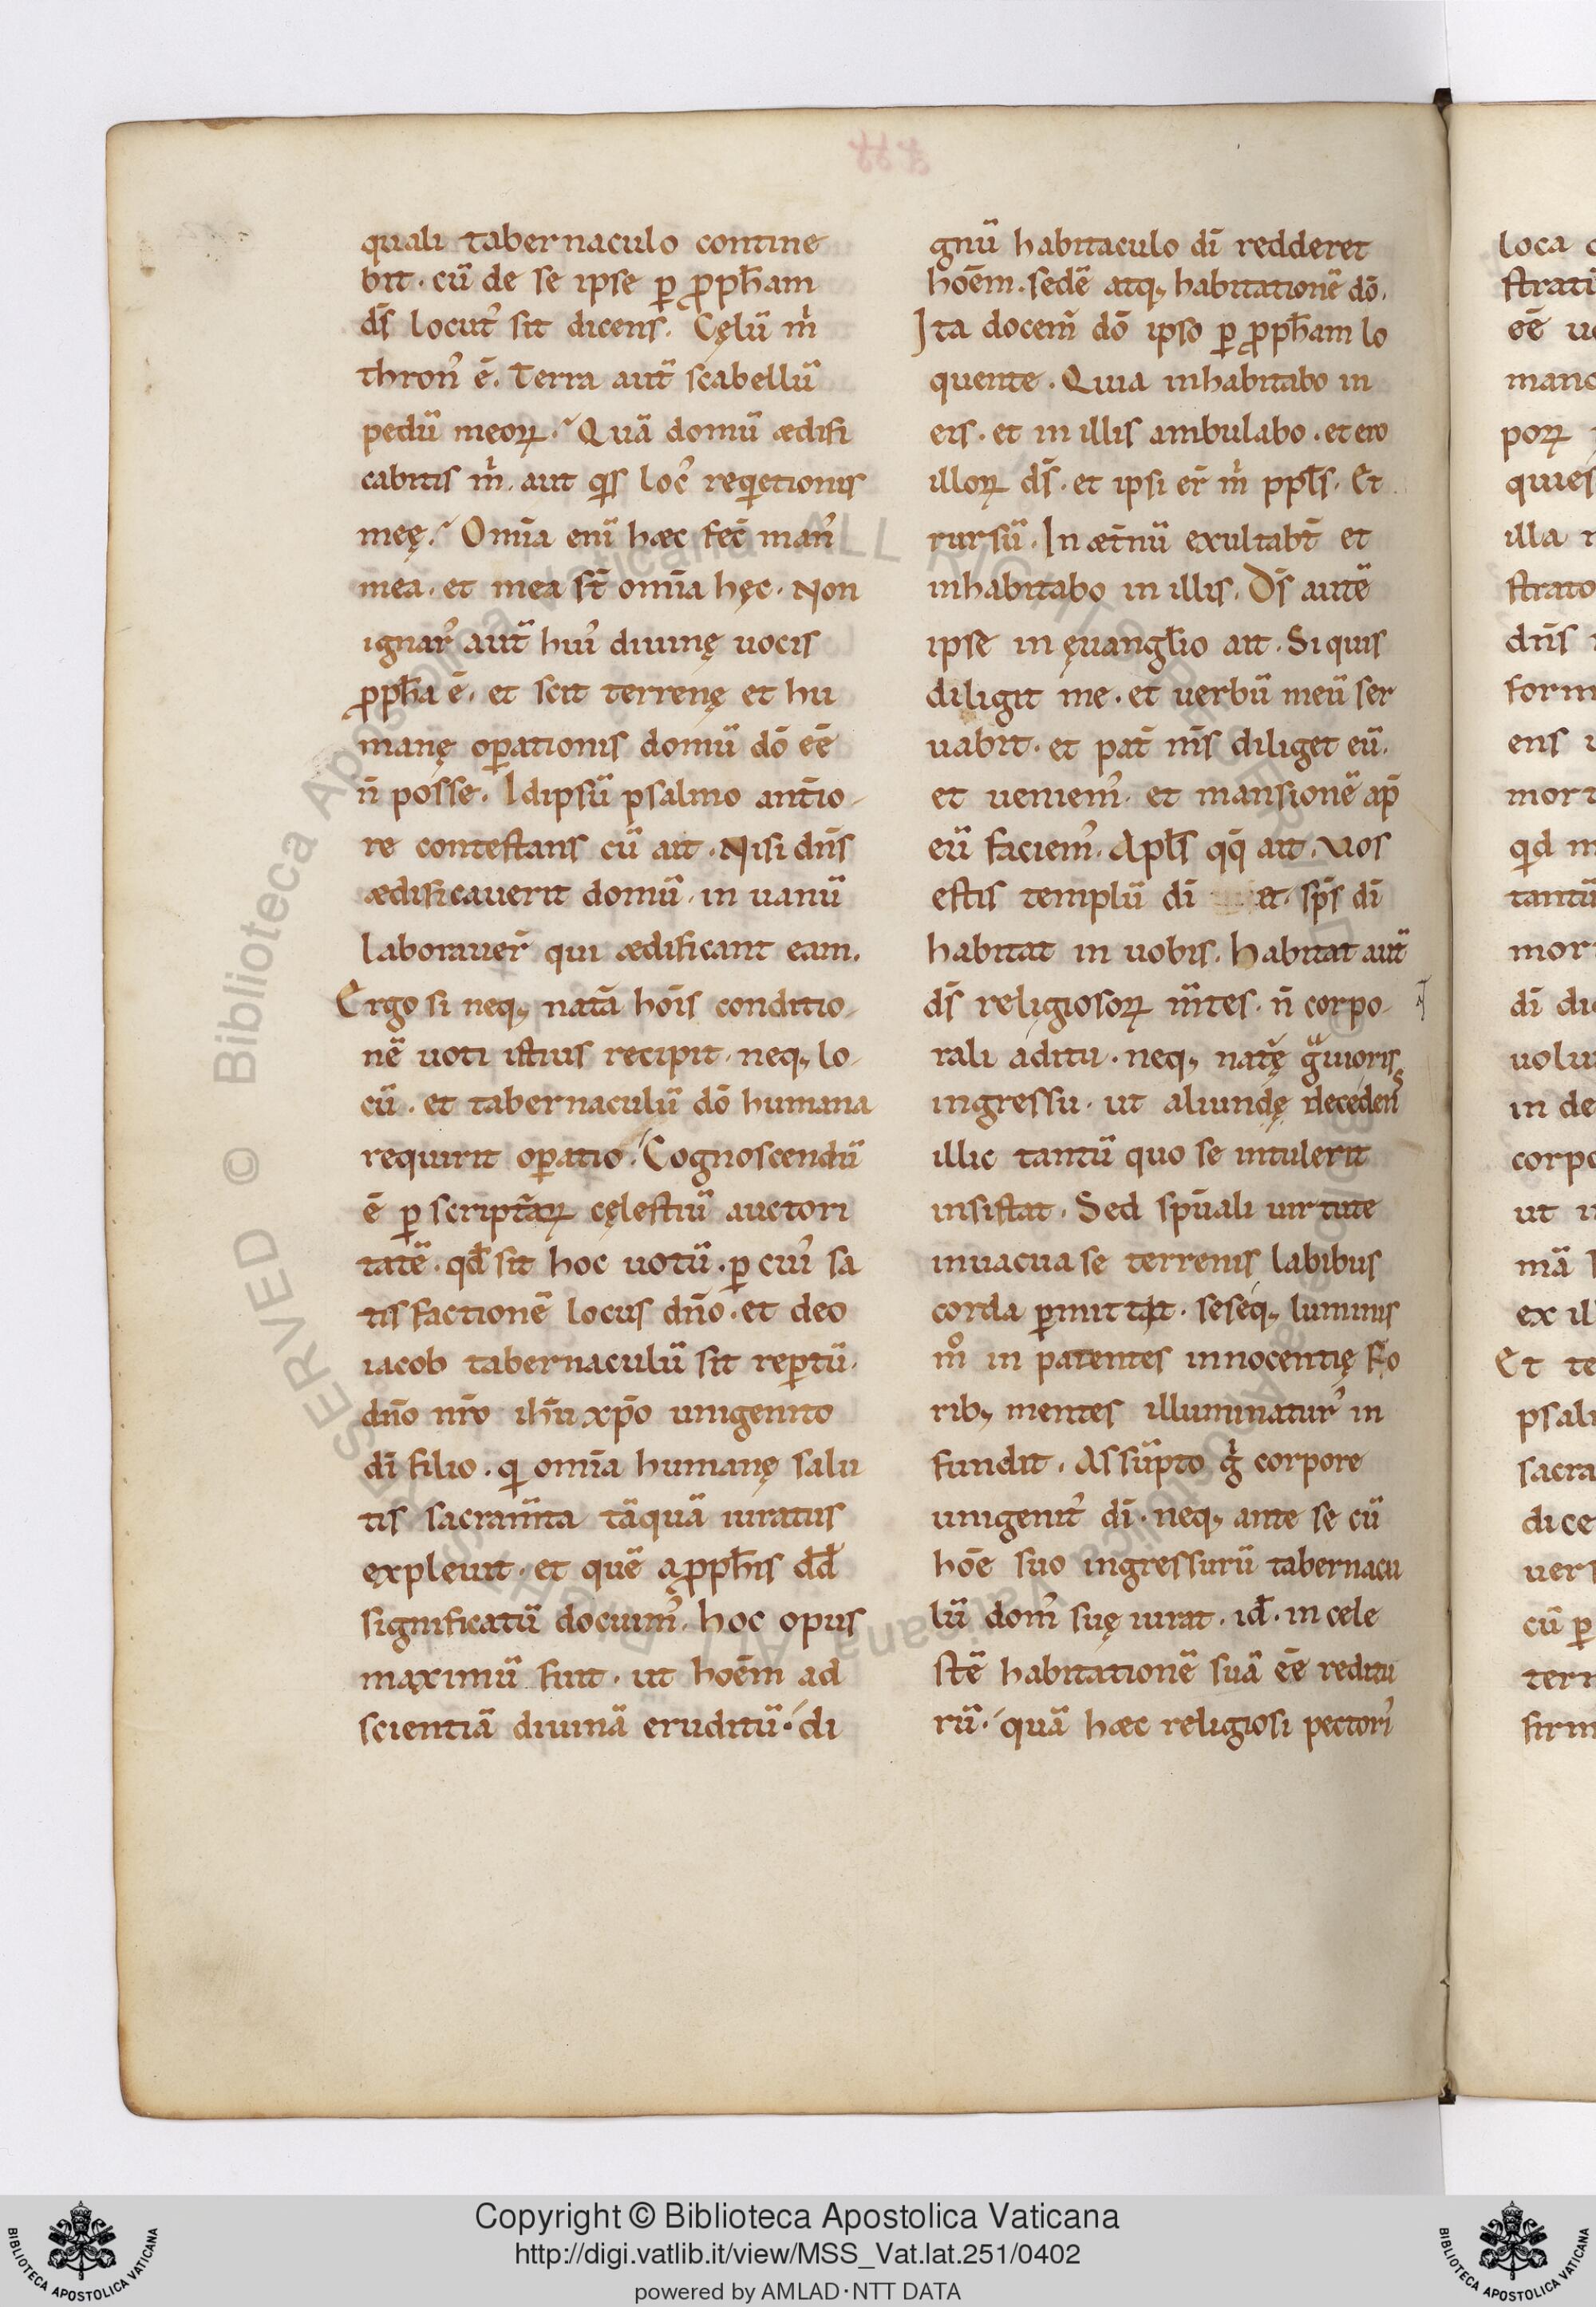 quali tabernaculo contine
bit · cū de se ipse ꝑ ꝓph̄am
d̄s locut᾿ sit dicens · Cęlū m̄
thron᾿ ē · Terra aut̄ scabellū
pedū meoꝝ · Quā domū ædifi
cabitis m̄ · aut qis loc᾿ reqietionis
meę · Om̄ia enī hæc fec̄ man᾿
mea · et mea st̄ om̄ia hęc · Non
ignar᾿ aut̄ hui᾿ diuinę uocis
ꝓph̄a ē · et scit terrenę et hu
manę oꝑationis domū dō ēē
n̄ posse · Idipsū psalmo antio-
re contestans cū ait · Nisi dn̄s
ædificauerit domū · in uanū
laborauer̄ qui ædificant eam ·
Ergo si neq; natā hōis conditio-
nē uoti istius recipit · neq; lo-
cū · et tabernaculū dō humana
requirit oꝑatio · Cognoscendū
ē ꝑ scriptāꝝ cęlestiū auctori
tatē · qd̄ sit hoc uotū · ꝑ cui᾿ sa
tisfactionē locus dn̄o · et deo
iacob tabernaculū sit reꝑtū ·
dn̄o nr̄o ih̄u xp̄o unigenito
dī filio · qi om̄ia humanę salu
tis sacram̄ta tāquā iuratus
expleuit · et quē a ꝓph̄is dd̄
significatū docuim᾿ · hoc opus
maximū fuit · ut hoēm ad
scientiā diuinā eruditū · di
gnū habitaculo dī redderet
hoēm · sedē atq; habitationē dō ·
Ita docem̄ dō ipso ꝑ ꝓph̄am lo
quente · Quia inhabitabo in
eis · et in illis ambulabo · et ero
illoꝝ d̄s · et ipsi er̄ m̄ ppl̄s · Et
rursū · In æt̄nū exultabt̄ et
inhabitabo in illis · D̄s autē
ipse in ęuangl̄io ait · Si quis
diligit me · et uerbū meū ser
uabit · et pat̄ m̄s diliget eū ·
et ueniem᾿ · et mansionē ap̄
eū faciem᾿ · Apl̄s qq̄ ait · Vos
estis templū dī et · sp̄s dī
habitat in uobis · habitat aut̄
d̄s religiosoꝝ m̄tes · n̄ corpo-
rali aditu · neq; natę gᵃuioris
ingressu · ut aliundę decedens
illic tantū quo se intulerit
insistat · Sed sp̄uali uirtute
inuacua se terrenis labibus
corda ꝑmittit · seseq; luminis
mº in patentes innocentię fo
rib; mentes illuminatur᾿ in
fundit · Assūpto gⁱ corpore
unigenit᾿ dī · neq; ante se cū
hoē suo ingressurū tabernacu
lū dom᾿ suę iurat · id̄ · in cele
stē habitationē suā ēē reditu
rū · quā hæc religiosi pectori᾿
Copyright © Biblioteca Apostolica Vaticana
http://digi.vatlib.it/view/MSS_Vat.lat.251/0402
powered by AMLAD·NTT DATA
BIBLIOTECA APOSTOLICA VATICANA
BIBLIOTECA APOSTOLICA VATICANA